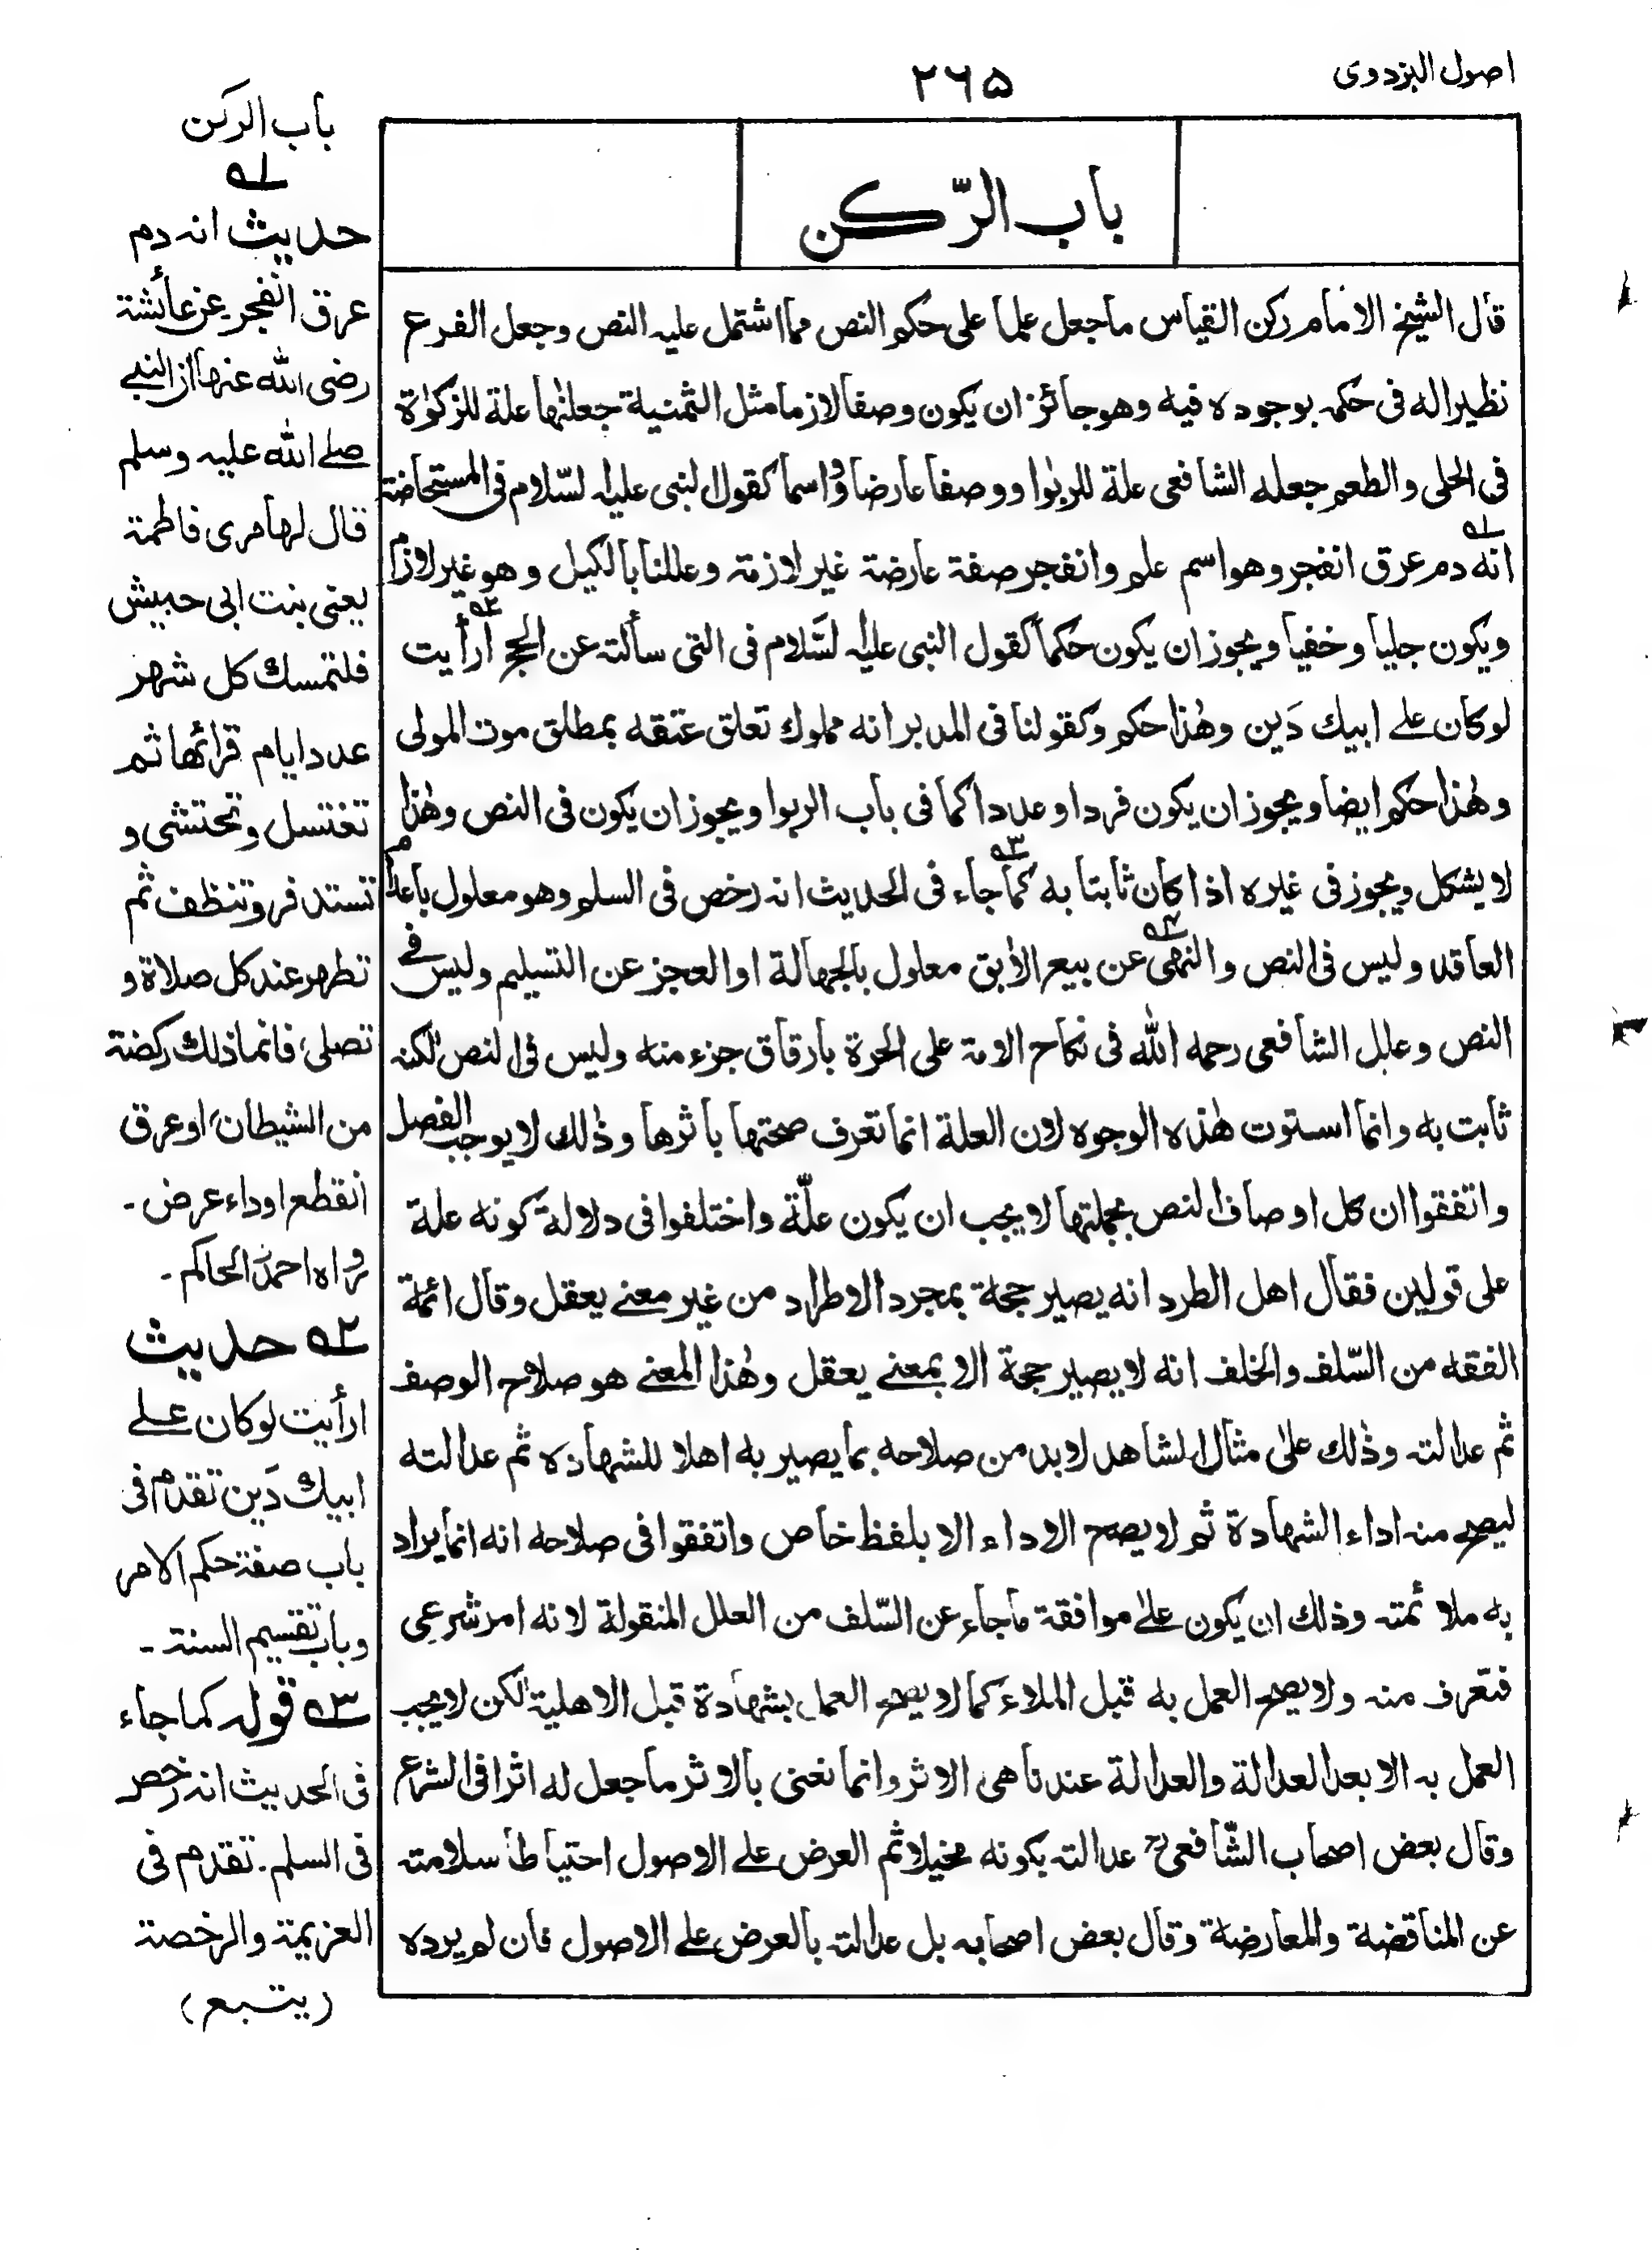 اصول البزدوی
۲۶۵
باب الرّكن
قال الشيخ الامام ركن القياس ماجعل علما على حكم النص مما اشتمل عليه النص وجعل الفرع
نظيرا له فى حكمه بوجوده فيه وهو جائز ان يكون وصفا لازما مثل الثمنية جعلنٰها علة للزكوٰة
فى الحلى والطعم جعله الشافعى علة للربٰوا ووصفا عارضا واسما كقول النبى عليه السّلام فى المستحاضة
انه دم عرق انفجر وهو اسم علم وانفجر صفة عارضة غير لازمة وعللنا بالكيل وهو غير لازم
ويكون جليا وخفيا ويجوز ان يكون حكما كقول النبى عليه السَّلام فى التى سألته عن الحج ارأيت
لوكان علے ابيك دَين وهٰذا حكم وكقولنا فى المدبر انه مملوك تعلق عتقه بمطلق موت المولى
وهٰذا حكم ايضا ويجوز ان يكون فردا وعددا كما فى باب الربوا ويجوز ان يكون فى النص وهٰذا
لا يشكل ويجوز فى غيره اذا كان ثابتا به كما جاء فى الحديث انه رخص فى السلم وهو معلول باعدام
العاقد وليس فى النص والنهى عن بيع الأبق معلول بالجهالة او العجز عن التسليم وليس فے
النص وعلل الشافعى رحمه الله فى نكاح الامة على الحرة بارقاق جزء منه وليس فى النص لٰكنه
ثابت به وانما استوت هٰذه الوجوه لان العلة انما تعرف صحتها باثرها وذٰلك لا يوجب الفصل
واتفقوا ان كل اوصاف النص بجملتها لا يجب ان يكون علّة واختلفوا فى دلالة كونه علة
على قولين فقال اهل الطرد انه يصير حجة بمجرد الاطراد من غير معنے يعقل وقال ائمة
الفقه من السّلف والخلف انه لا يصير حجة الا بمعنے يعقل وهٰذا المعنے هو صلاح الوصف
ثم عدالته وذٰلك علیٰ مثال الشاهد لا بد من صلاحه بما يصير به اهلا للشهادة ثم عدالته
ليصح منه اداء الشهادة ثم لا يصح الاداء الا بلفظ خاص واتفقوا فى صلاحه انه انما يراد
به ملائمته وذلك ان يكون علےٰ موافقة ماجاء عن السّلف من العلل المنقولة لانه امر شرعى
فتعرف منه ولا يصح العمل به قبل الملاء كما لا يصح العمل بشهادة قبل الاهلية لٰكن لا يجب
العمل به الا بعد العدالة والعدالة عندنا هى الاثر وانما نعنى بالاثر ما جعل له اثرا فى الشرع
وقال بعض اصحاب الشّافعى ؒ عدالته بكونه مخيلا ثم العرض علے الاصول احتياطا سلامته
عن المناقضة والمعارضة وقال بعض اصحابه بل عدالته بالعرض علے الاصول فان لم يرده
باب الركن
۱ه
حديث انه دم
عرق انفجر عن عائشة
رضى الله عنها ان النبے
صلے الله عليه وسلم
قال لها مرى فاطمة
يعنى بنت ابى حبيش
فلتمسك كل شهر
عدد ايام قرائها ثم
تغتسل وتحتشى و
تستذفر وتنظف ثم
تطهر عند كل صلاة و
تصلى، فانما ذلك ركضة
من الشيطان، او عرق
انقطع او داء عرض ۔
رواه احمد والحاكم ۔
۲ه حديث
ارأيت لوكان علے
ابيك دَين تقدم فى
باب صفة حكم الامر
وباب تقسيم السنة ۔
۳ه قوله كما جاء
فى الحديث انه رخص
فى السلم . تقدم فى
العزيمة والرخصة
(يتبع)